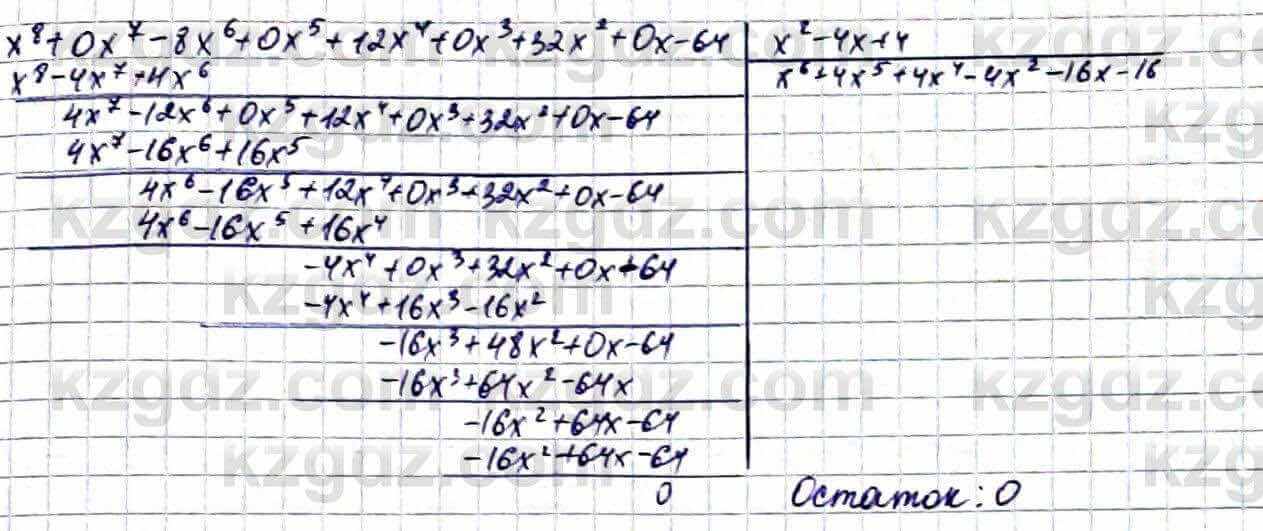 x⁸+0x⁷-8x⁶+0x⁵+12x⁴+0x³+32x²+0x-64 | x²-4x+4
x⁸-4x⁷+4x⁶ | x⁶+4x⁵+4x⁴-4x²-16x-16
4x⁷-12x⁶+0x⁵+12x⁴+0x³+32x²+0x-64
4x⁷-16x⁶+16x⁵
4x⁶-16x⁵+12x⁴+0x³+32x²+0x-64
4x⁶-16x⁵+16x⁴
-4x⁴+0x³+32x²+0x-64
-4x⁴+16x³-16x²
-16x³+48x²+0x-64
-16x³+64x²-64x
-16x²+64x-64
-16x²+64x-64
0
Остаток: 0
kzgdz.com